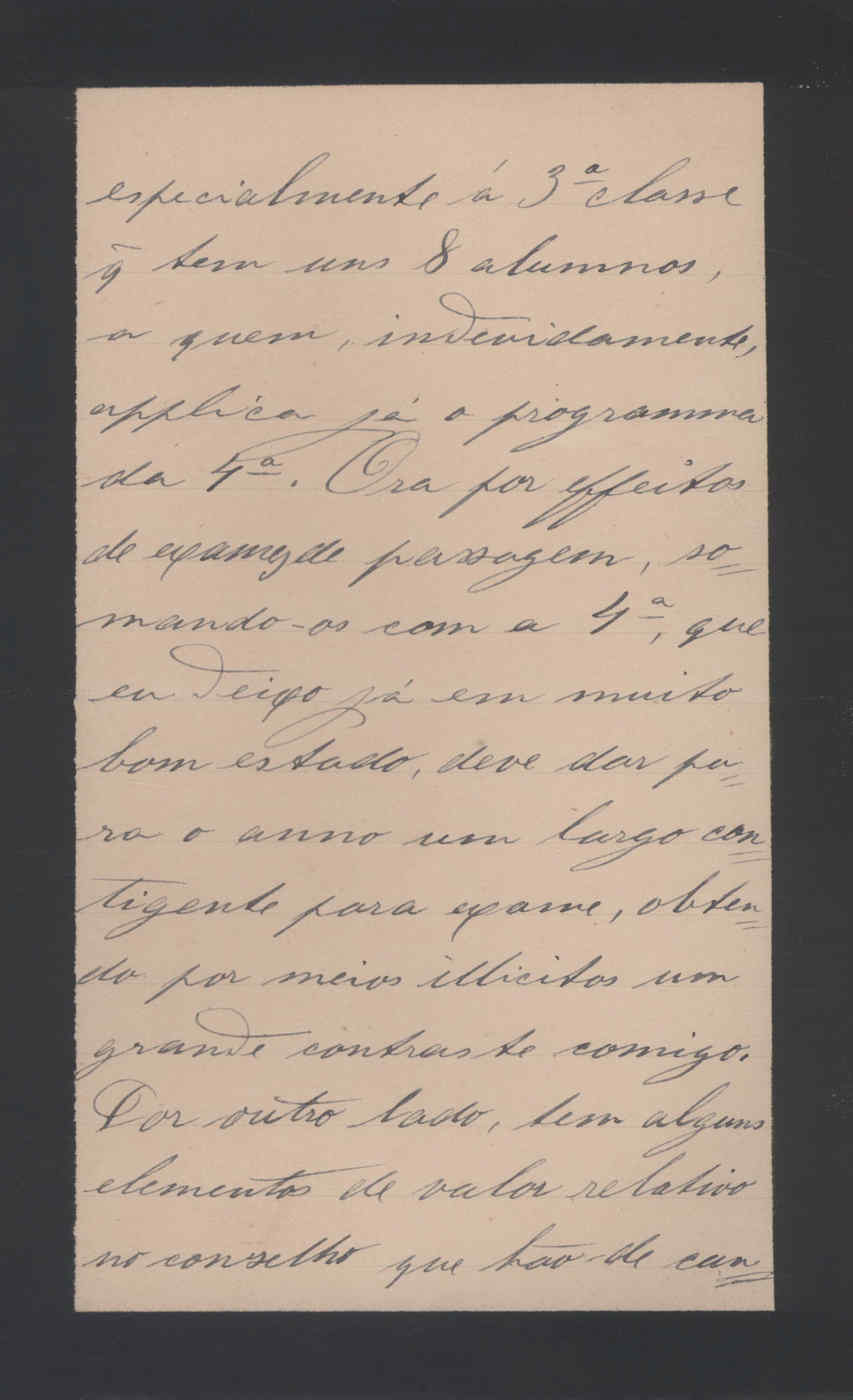 especialmente á 3ª classe
q̃ tem uns 8 alumnos,
a quem, indevidamente,
applica já o programma
da 4ª. Ora por effeitos
de exames de passagem, so=
mando-os com a 4ª, que
eu deixo já em muito
bom estado, deve dar pa=
ra o anno um largo con=
tigente para exame, obten=
do por meios illicitos um
grande contraste comigo.
Por outro lado, tem alguns
elementos de valor relativo
no conselho que hão de can=